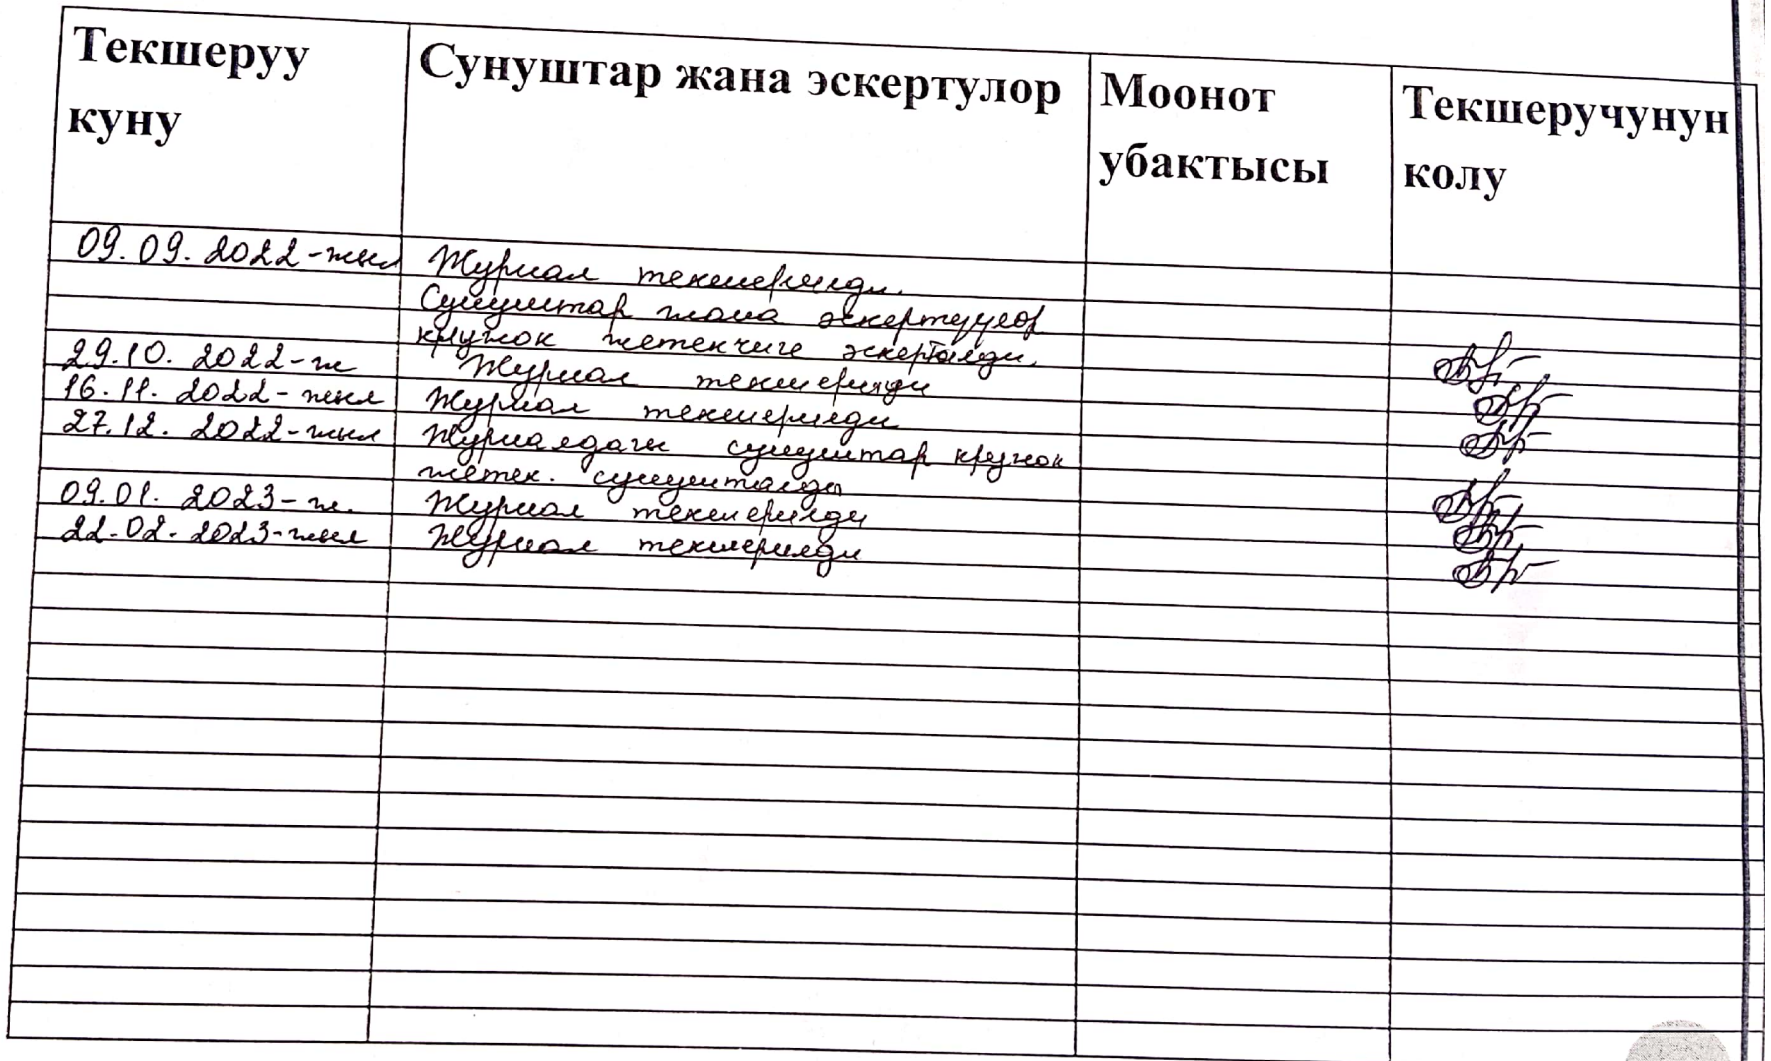 Текшеруу Сунуштар жана эскертулор Моонот Текшеручунун
куну убактысы колу
09.09.2022-жыл Журнал текшерилди.
Сунуштар жана эскертүүлөр
кружок жетекчиге эскертилди.
29.10.2022-ж Журнал текшерилди
16.11.2022-жыл Журнал текшерилди
27.12.2022-жыл Журналдагы сунуштар кружок
жетек. сунушталды
09.01.2023-ж. Журнал текшерилди
22.02.2023-жыл Журнал текшерилди